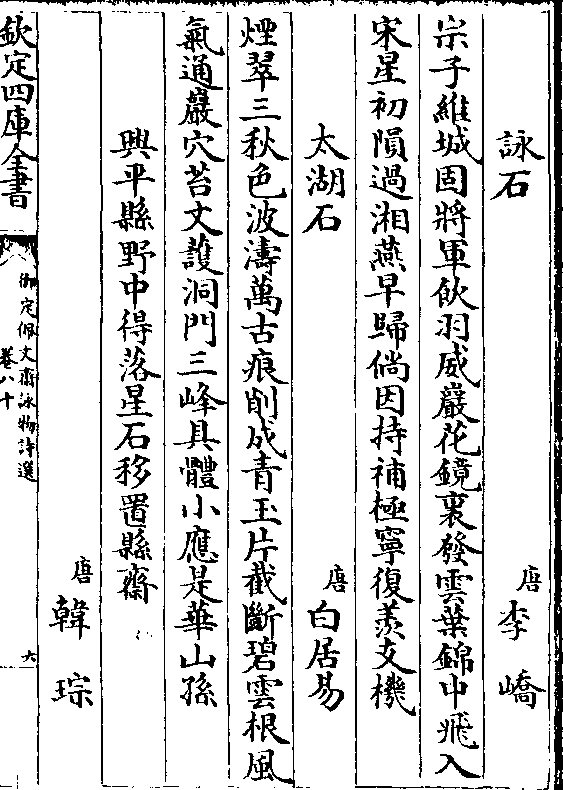 詠石　唐　李嶠
宗子維城固將軍飲羽威巖花鏡裏發雲葉錦中飛入
宋星初隕過湘燕早歸倘因持補極寧復羨支機
太湖石　唐　白居易
煙翠三秋色波濤萬古痕削成青玉片截斷碧雲根風
氣通巖穴苔文護洞門三峰具體小應是華山孫
興平縣野中得落星石移置縣齋
唐　韓琮
欽定四庫全書
御定佩文齋詠物詩選
卷八十
六